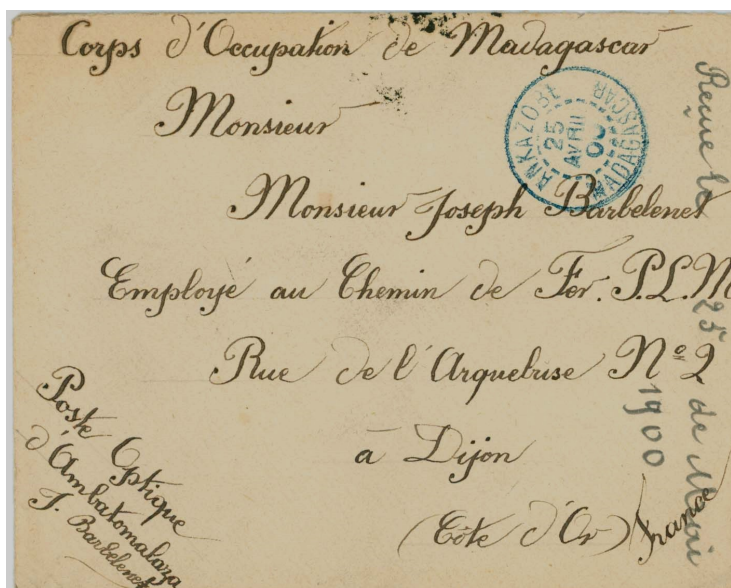 Corps d'Occupation de Madagascar
Monsieur
Monsieur Joseph Barbelenet
Employé au Chemin de Fer. P.L.M
Rue de l'Arquebuse Nº 2
à Dijon
(Côte d'Or) France
Poste Optique
d'Ambatomalaza
J. Barbelenet
ANKAZOBE
25
AVRIL
00
MADAGASCAR
Reçue le 25 de Mai
1900